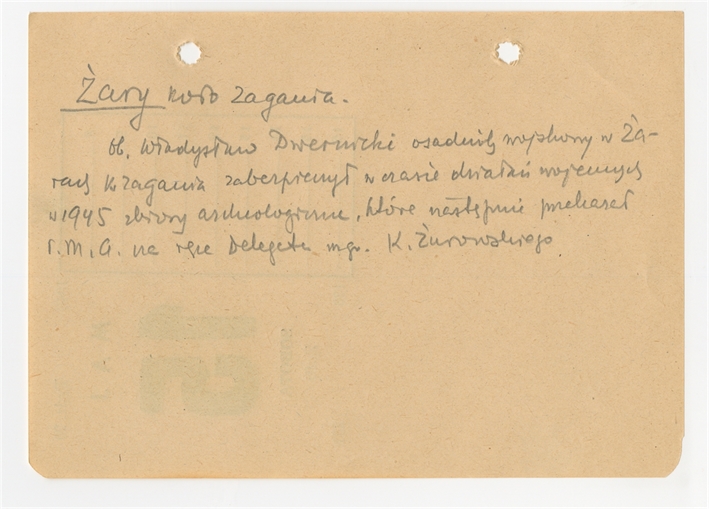 Żary koło Żagania.
ob. Władysław Dwernicki osadnik wojskowy w Ża-
rach k. Żagania zabezpieczył w czasie działań wojennych
w 1945 zbiory archeologiczne, które następnie przekazał
P.M.A. na ręce Delegata mgr. K. Żurowskiego